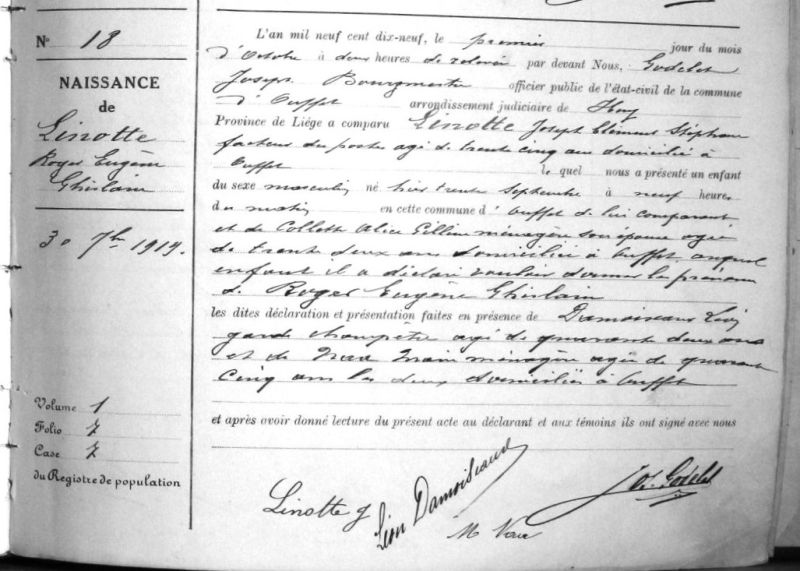 N° 18
NAISSANCE
de
Linotte
Roger Eugène
Ghislain
30 7bre 1919.
Volume 1
Folio 7
Case 7
du Registre de population
L'an mil neuf cent dix-neuf, le premier jour du mois
d'Octobre à deux heures de relevée par devant Nous, Godelet
Joseph Bourgmestre officier public de l'état-civil de la commune
d'Ouffet arrondissement judiciaire de Huy
Province de Liége a comparu Linotte Joseph Clément Stéphane
facteur des postes agé de trente cinq ans domicilié à
Ouffet le quel nous a présenté un enfant
du sexe masculin né hier trente Septembre à neuf heures
du matin en cette commune d'Ouffet de lui comparant
et de Collette Alice ménagère son épouse agée
de trente deux ans domiciliée à Ouffet auquel
enfant il a déclaré vouloir donner les prénoms
de Roger Eugène Ghislain
les dites déclaration et présentation faites en présence de Damoiseaux Léon
garde champêtre agé de quarante deux ans
et de ménagère agée de quarante
cinq ans les deux domiciliés à Ouffet
et après avoir donné lecture du présent acte au déclarant et aux témoins ils ont signé avec nous
Linotte J
Léon Damoiseaux
Jos. Godelet